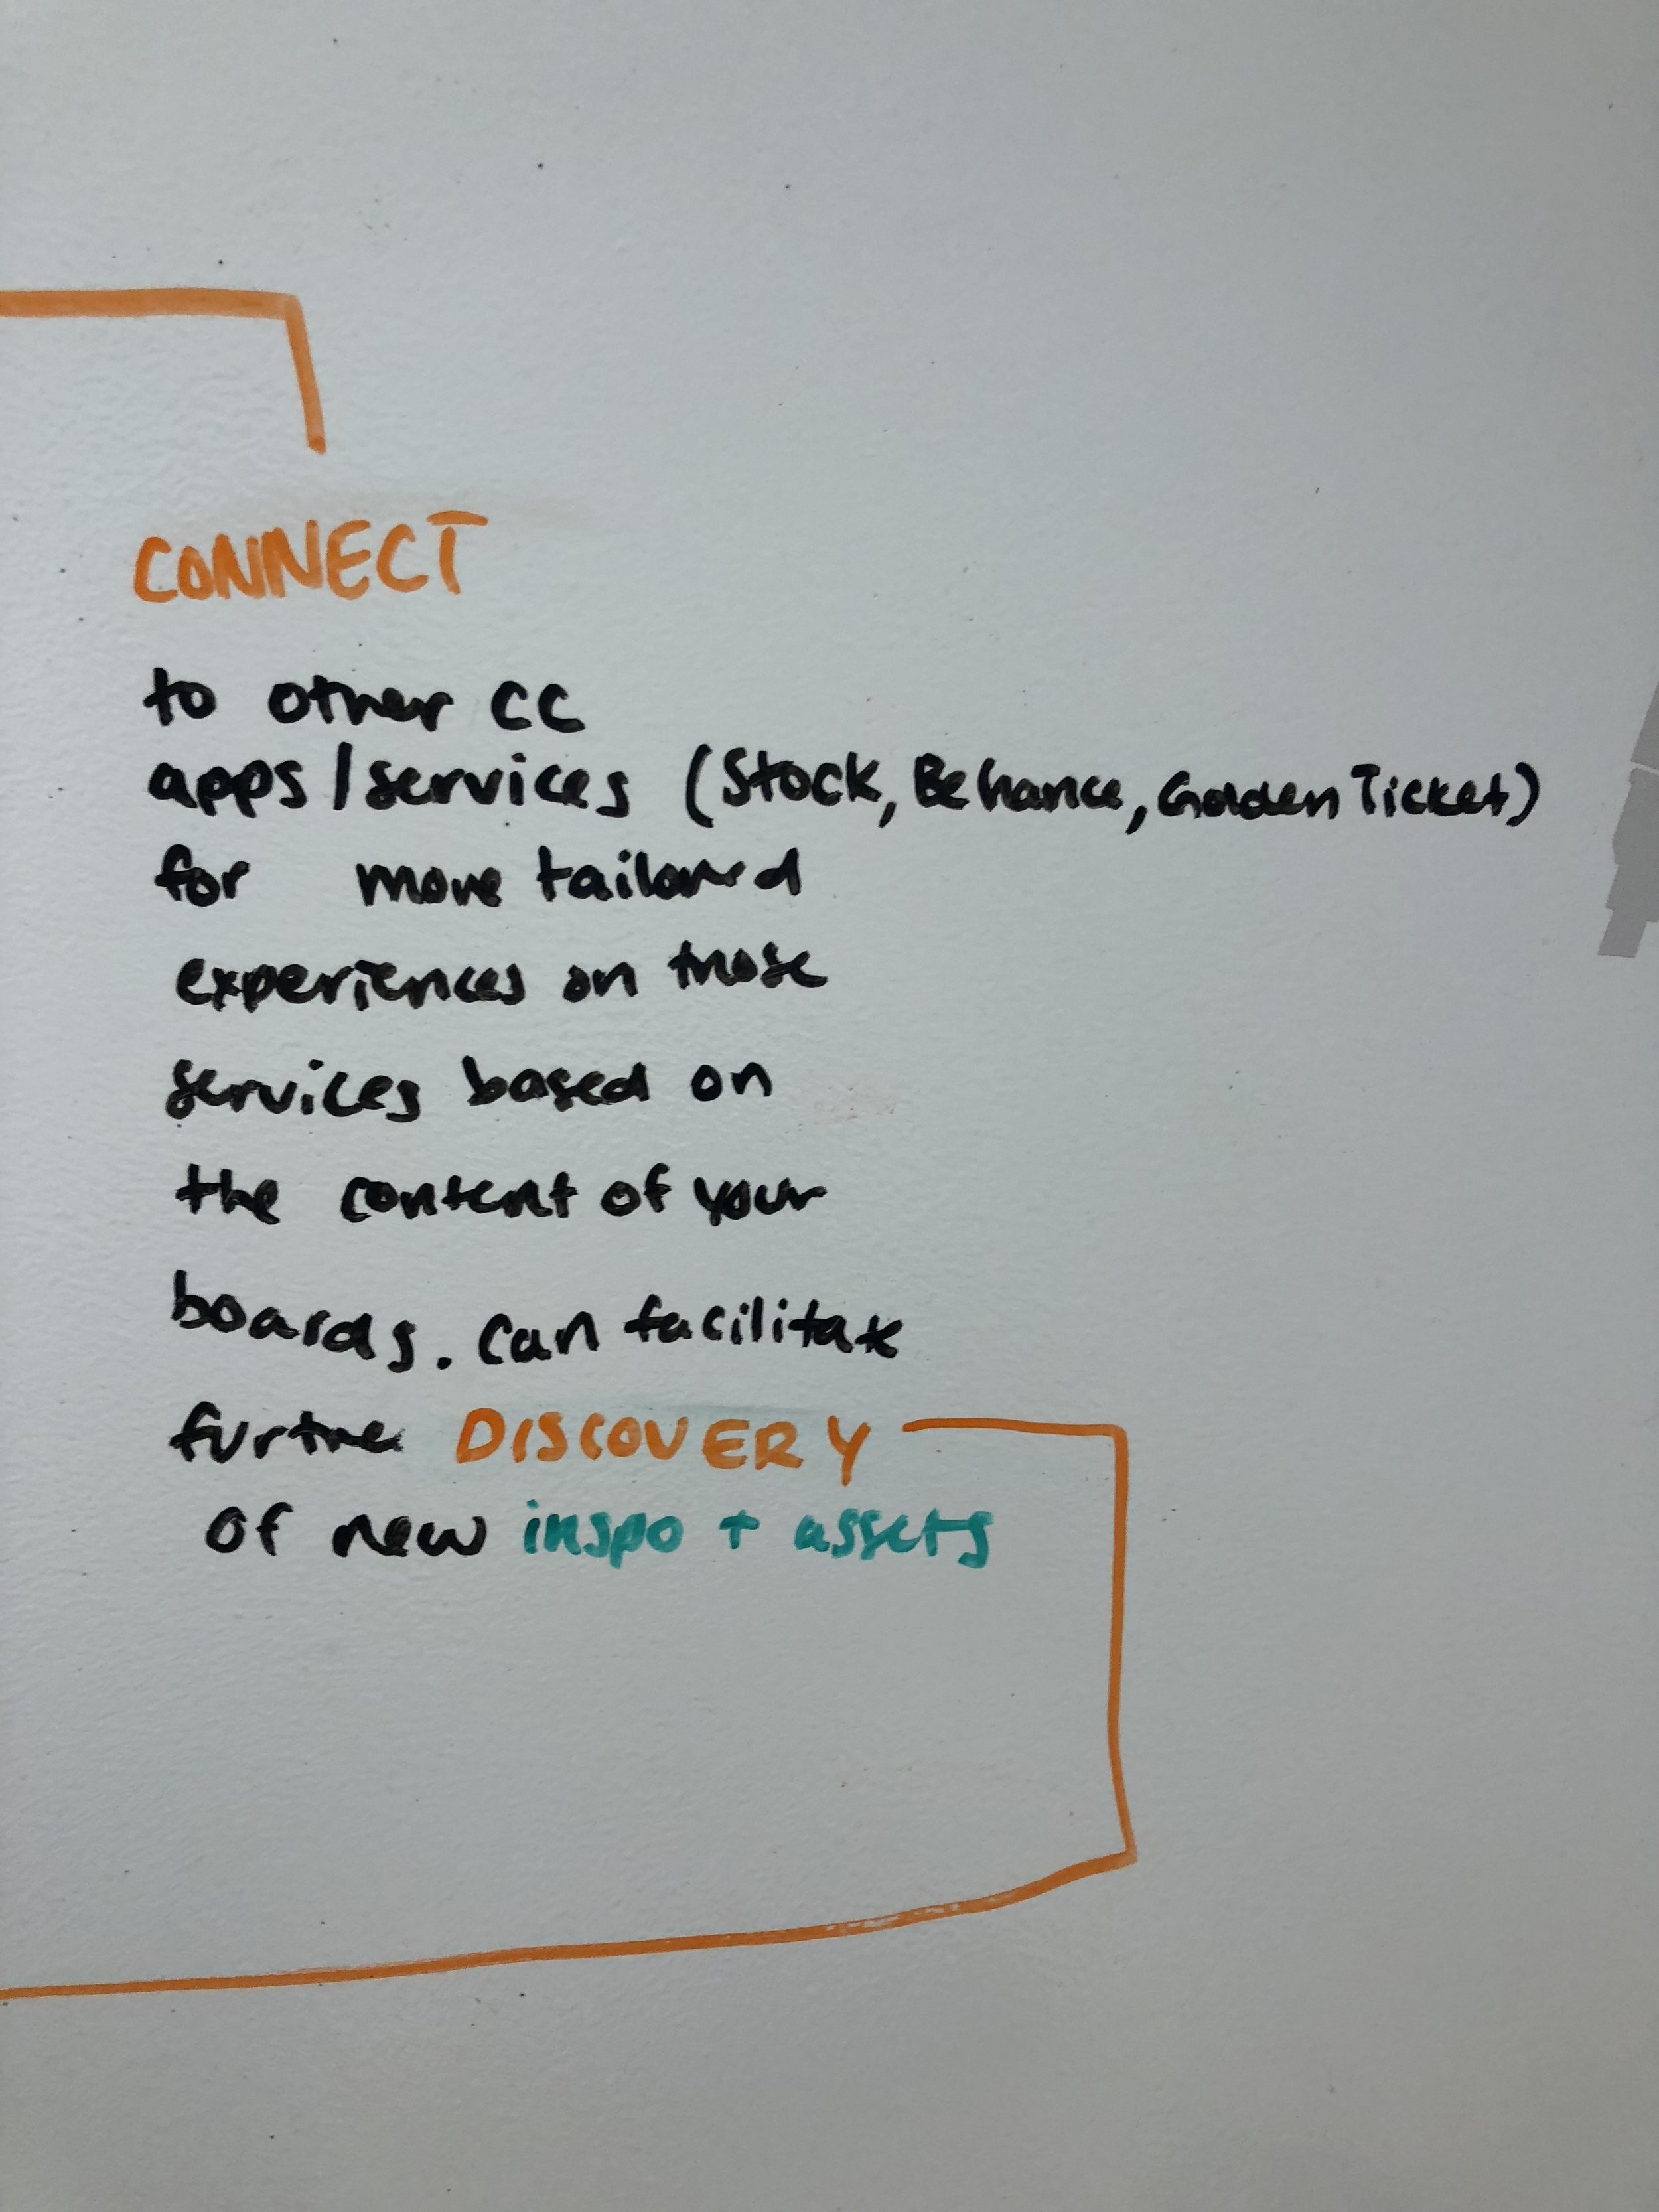 CONNECT
to other CC
apps/services (Stock, Behance, Golden Ticket)
for more tailored
experiences on those
services based on
the content of your
boards. can facilitate
further DISCOVERY
of new inspo + assets